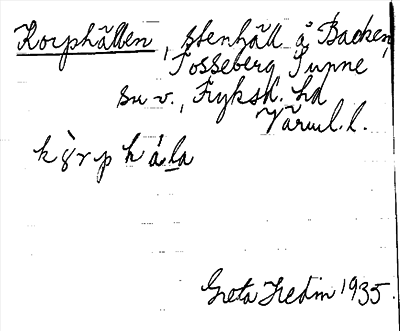 Korphällen, stenhäll å Backen,
Tosseberg Sunne
sn v., Fryksd. hd
Värml. l.
k ò̤ r p h á l a
Greta Hedin 1935.